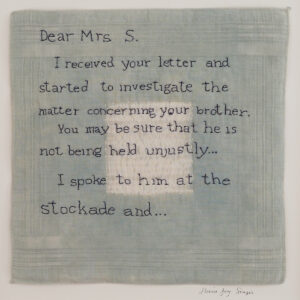 Dear Mrs S.
I received your letter and
started to investigate the
matter concerning your brother.
You may be sure that he is
not being held unjustly...
I spoke to him at the
stockade and...